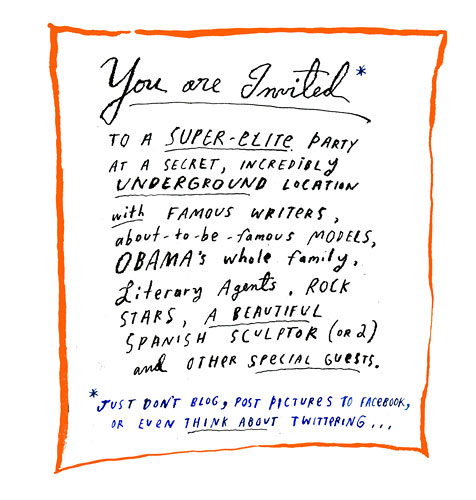 You are Invited*
TO A SUPER-ELITE PARTY
AT A SECRET, INCREDIBLY
UNDERGROUND LOCATION
with FAMOUS WRITERS,
about-to-be-famous MODELS,
OBAMA's whole family,
Literary Agents, ROCK
STARS, A BEAUTIFUL
SPANISH SCULPTOR (OR 2)
and OTHER SPECIAL GUESTS.
*JUST DON'T BLOG, POST PICTURES TO FACEBOOK,
OR EVEN THINK ABOUT TWITTERING...